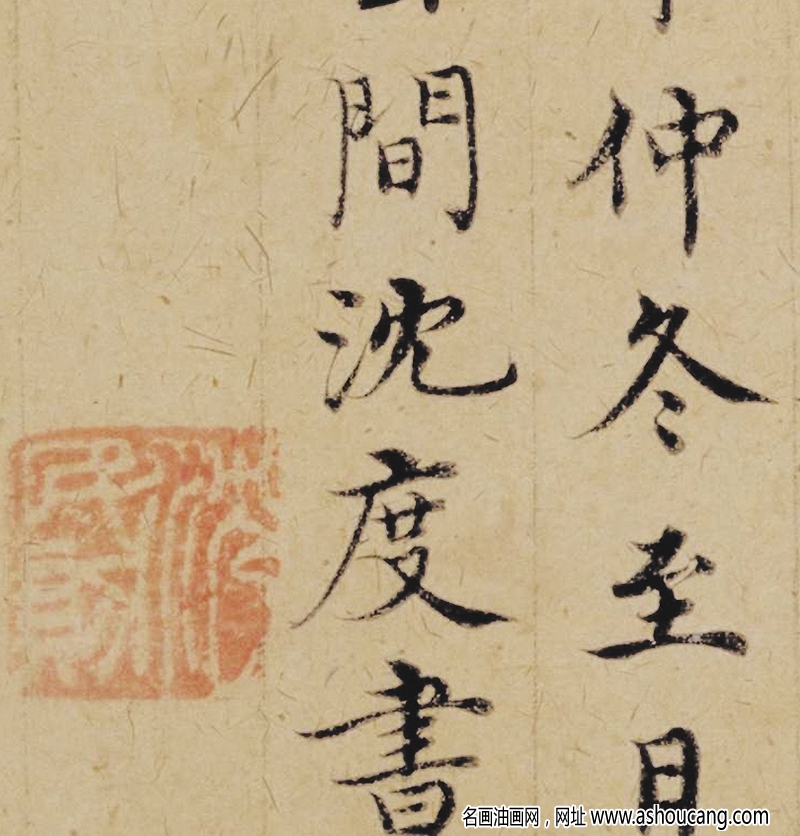 仲冬至日
間沈度書
名画油画网，网址 www.ashoucang.com